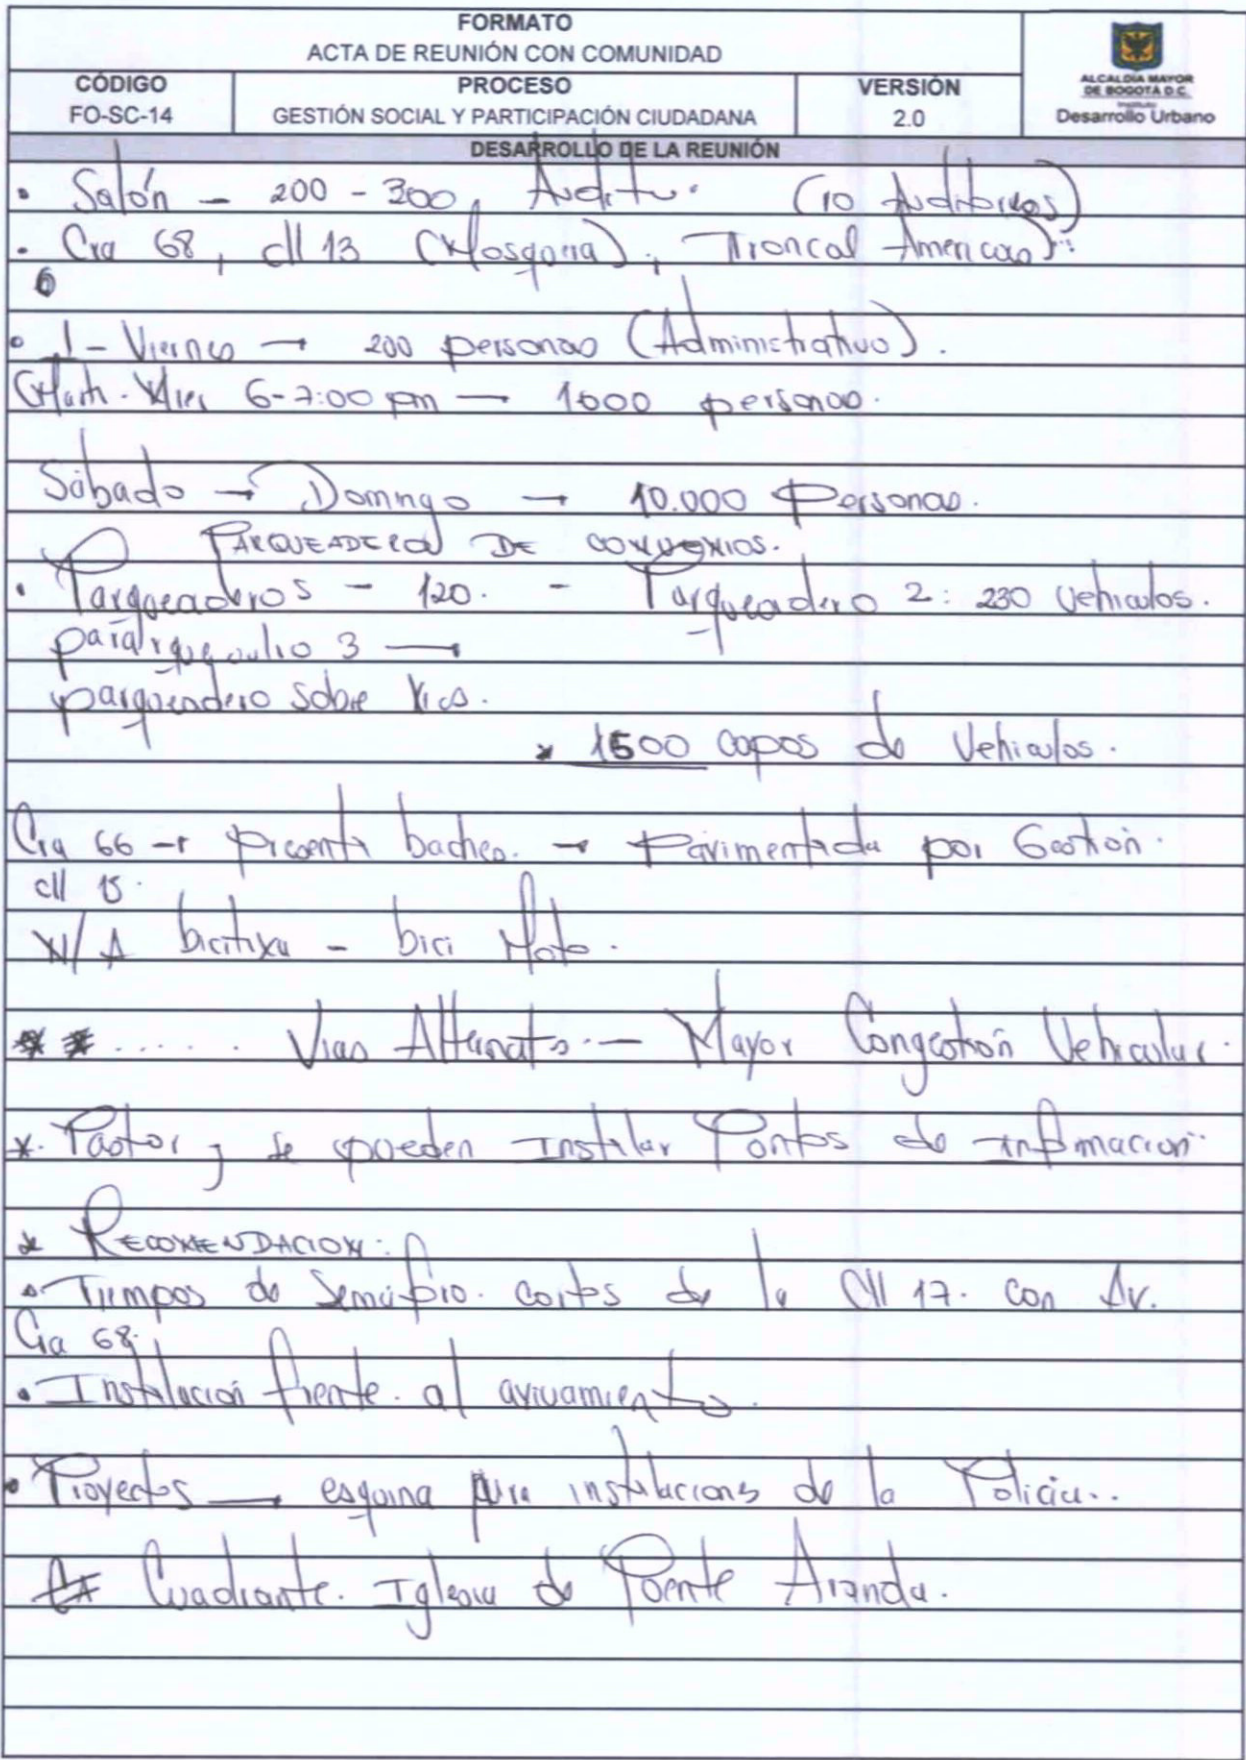 FORMATO
ACTA DE REUNIÓN CON COMUNIDAD
CÓDIGO
FO-SC-14
PROCESO
GESTIÓN SOCIAL Y PARTICIPACIÓN CIUDADANA
VERSIÓN
2.0
ALCALDÍA MAYOR
DE BOGOTÁ D.C.
Instituto
Desarrollo Urbano
DESARROLLO DE LA REUNIÓN
• Salón - 200 - 300, (10 Auditorios)
• Cra 68, cll 13 , Troncal Americas)
• - Viernes → 200 personas (Administrativo).
6-7:00 pm → 1000 personas.
Sábado → Domingo → 10.000 Personas.
PARQUEADEROS DE CONVENIOS.
• Parqueaderos - 120. - Parqueadero 2: 230 vehiculos.
3 →
parqueadero sobre Vias.
* 1500 cupos de Vehiculos.
Cra 66 → presenta baches. → Pavimentada por Gestión.
cll 15.
N/A bicitaxi - bici Moto.
** ...... Vias Alternats. - Mayor Congestión Vehicular.
*. Pastor, se pueden Instalar Pontos de informacion
* RECOMENDACION:
• Tiempos de Semáforo. cortos de la Cll 17. con Av.
Cra 68.
• Instalación frente. al avivamiento.
• Proyectos → esquina para instalaciones de la Policia..
Cuadrante. Iglesia de Poente Aranda.